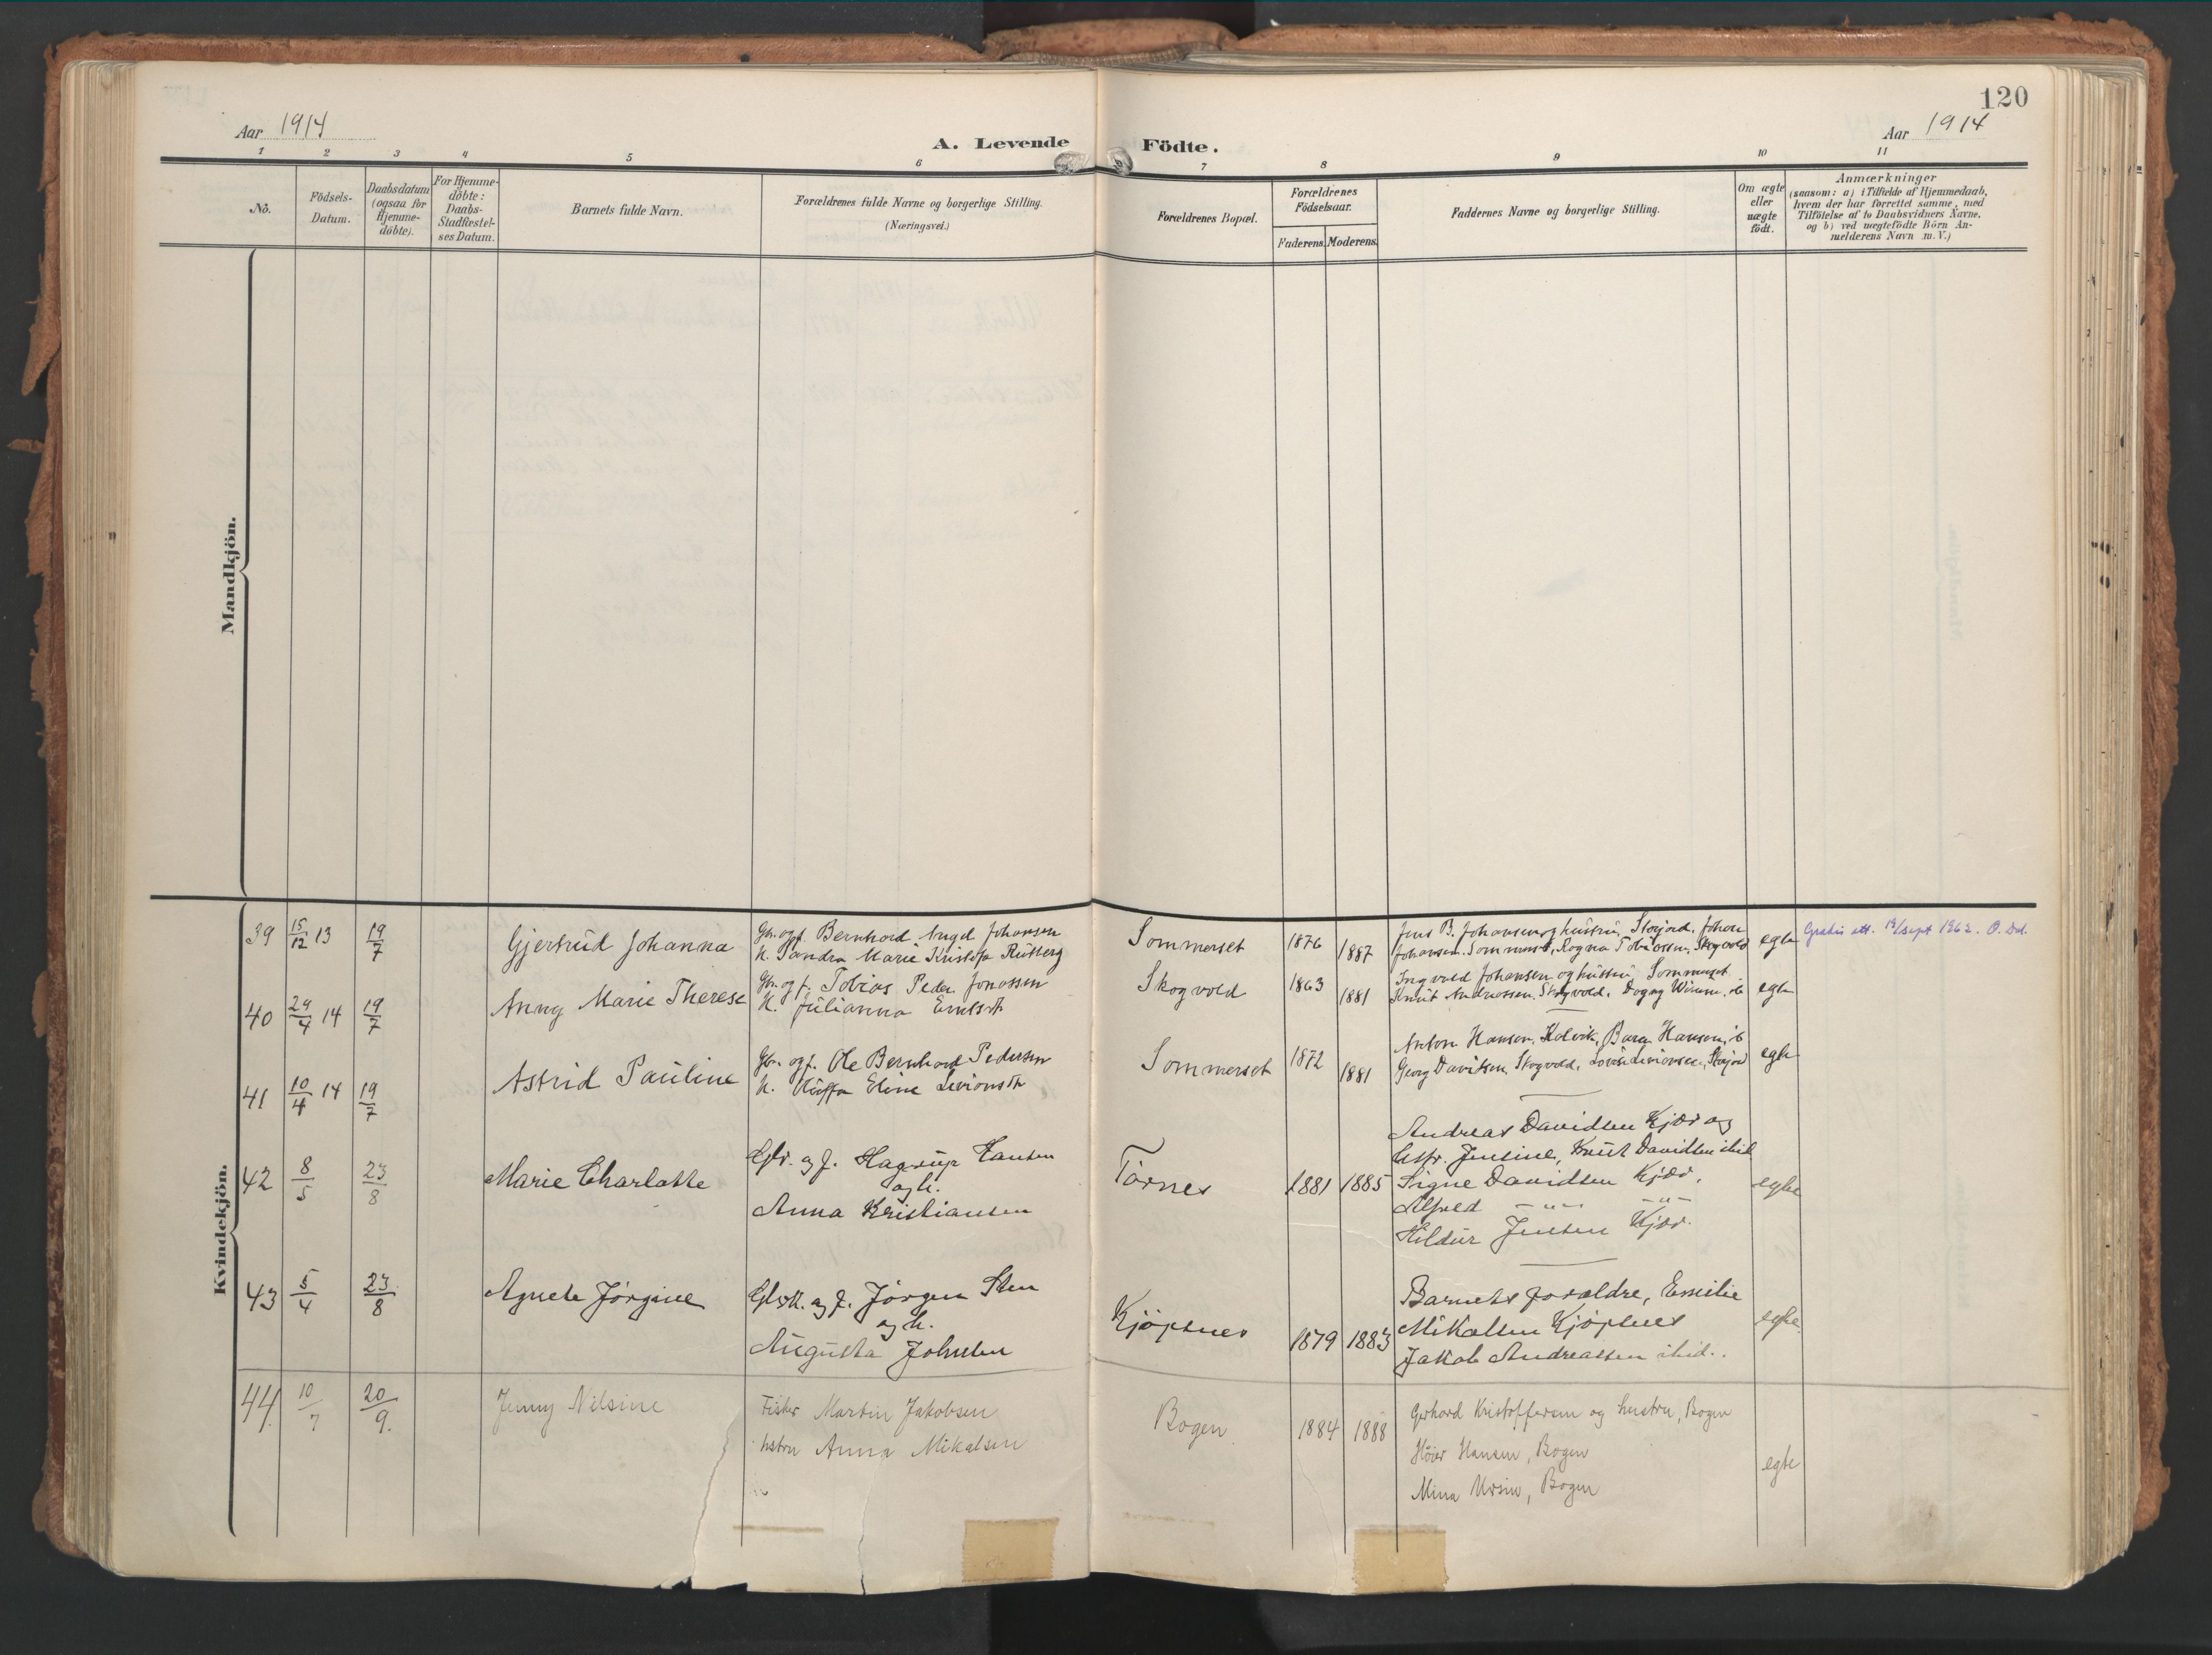 120
Aar 1914
A. Levende Födte.
Aar 1914
1 2 3 4 5 6 7 8 9 10 11
No.
Födsels-
Datum.
Daabsdatum
(ogsaa for
Hjemme-
döbte).
For Hjemme-
döbte:
Daabs-
Stadfæstel-
ses Datum.
Barnets fulde Navn.
Forældrenes fulde Navne og borgerlige Stilling.
(Næringsvei.)
Forældrenes Bopæl.
Forældrenes
Födselsaar.
Faderens. Moderens.
Faddernes Navne og borgerlige Stilling.
Om ægte
eller
uægte
födt.
Anmærkninger
(saasom: a) i Tilfælde af Hjemmedaab,
hvem der har forrettet samme, med
Tilföielse af to Daabsvidners Navne.
og b) ved uægtefödte Börn An-
melderens Navn m. V.)
Mandkjön.
Kvindekjön.
39 15/12 13 19/7 Gjertrud Johanna
Gbr. og f. Bernhard Johansen
h. Sandra Marie
Sommerset 1876 1887
Jens B. Johansen og hustru, Storjord, Johan
Johansen, Sommerset, Ragna Tobiassen, Skogvold
egte
Gratis att. sept 1962.
40 29/4 14 19/7 Anny Marie Therese
Gbr. og f. Tobias Peder Jonassen
h. Julianna
Skogvold 1863 1881
Ingvald Johansen og hustru, Sommerset
Knut Andreassen, Skogvold, Dagny
egte
41 10/4 14 19/7 Astrid Pauline
Gbr. og f. Ole Bernhard Pedersen
h. Eline
Sommerset 1872 1881
Anton Hansen, Hansen, ib
Georg Davidsen, Skogvold, Storjord
egte
42 8/5 23/8 Marie Charlotte
Gbr. og f. Hagrup Hansen
og h.
Anna Kristiansen
Tørnes 1881 1885
Andreas Davidsen Kjær og
Jensine, Knut Davidsen ibid
Signe Davidsen Kjær.
Alfred -"- -"-
Hildur Jensen Kjær.
egte
43 5/4 23/8 Agnete Jørgine
og f. Jørgen Sten
og h.
Augusta Johnsen
Kjøpsnes 1879 1883
Barnets forældre, Emilie
Mikalsen Kjøpsnes
Jakob Andreassen ibid.
egte.
44 10/7 20/9. Jenny Nilsine
Fisker Martin Jakobsen
hstru Anna Mikalsen
Bogen. 1884 1888
Gerhard Kristoffersen og hustru, Bogen
Höier Hansen, Bogen
Mina Ursin, Bogen
egte